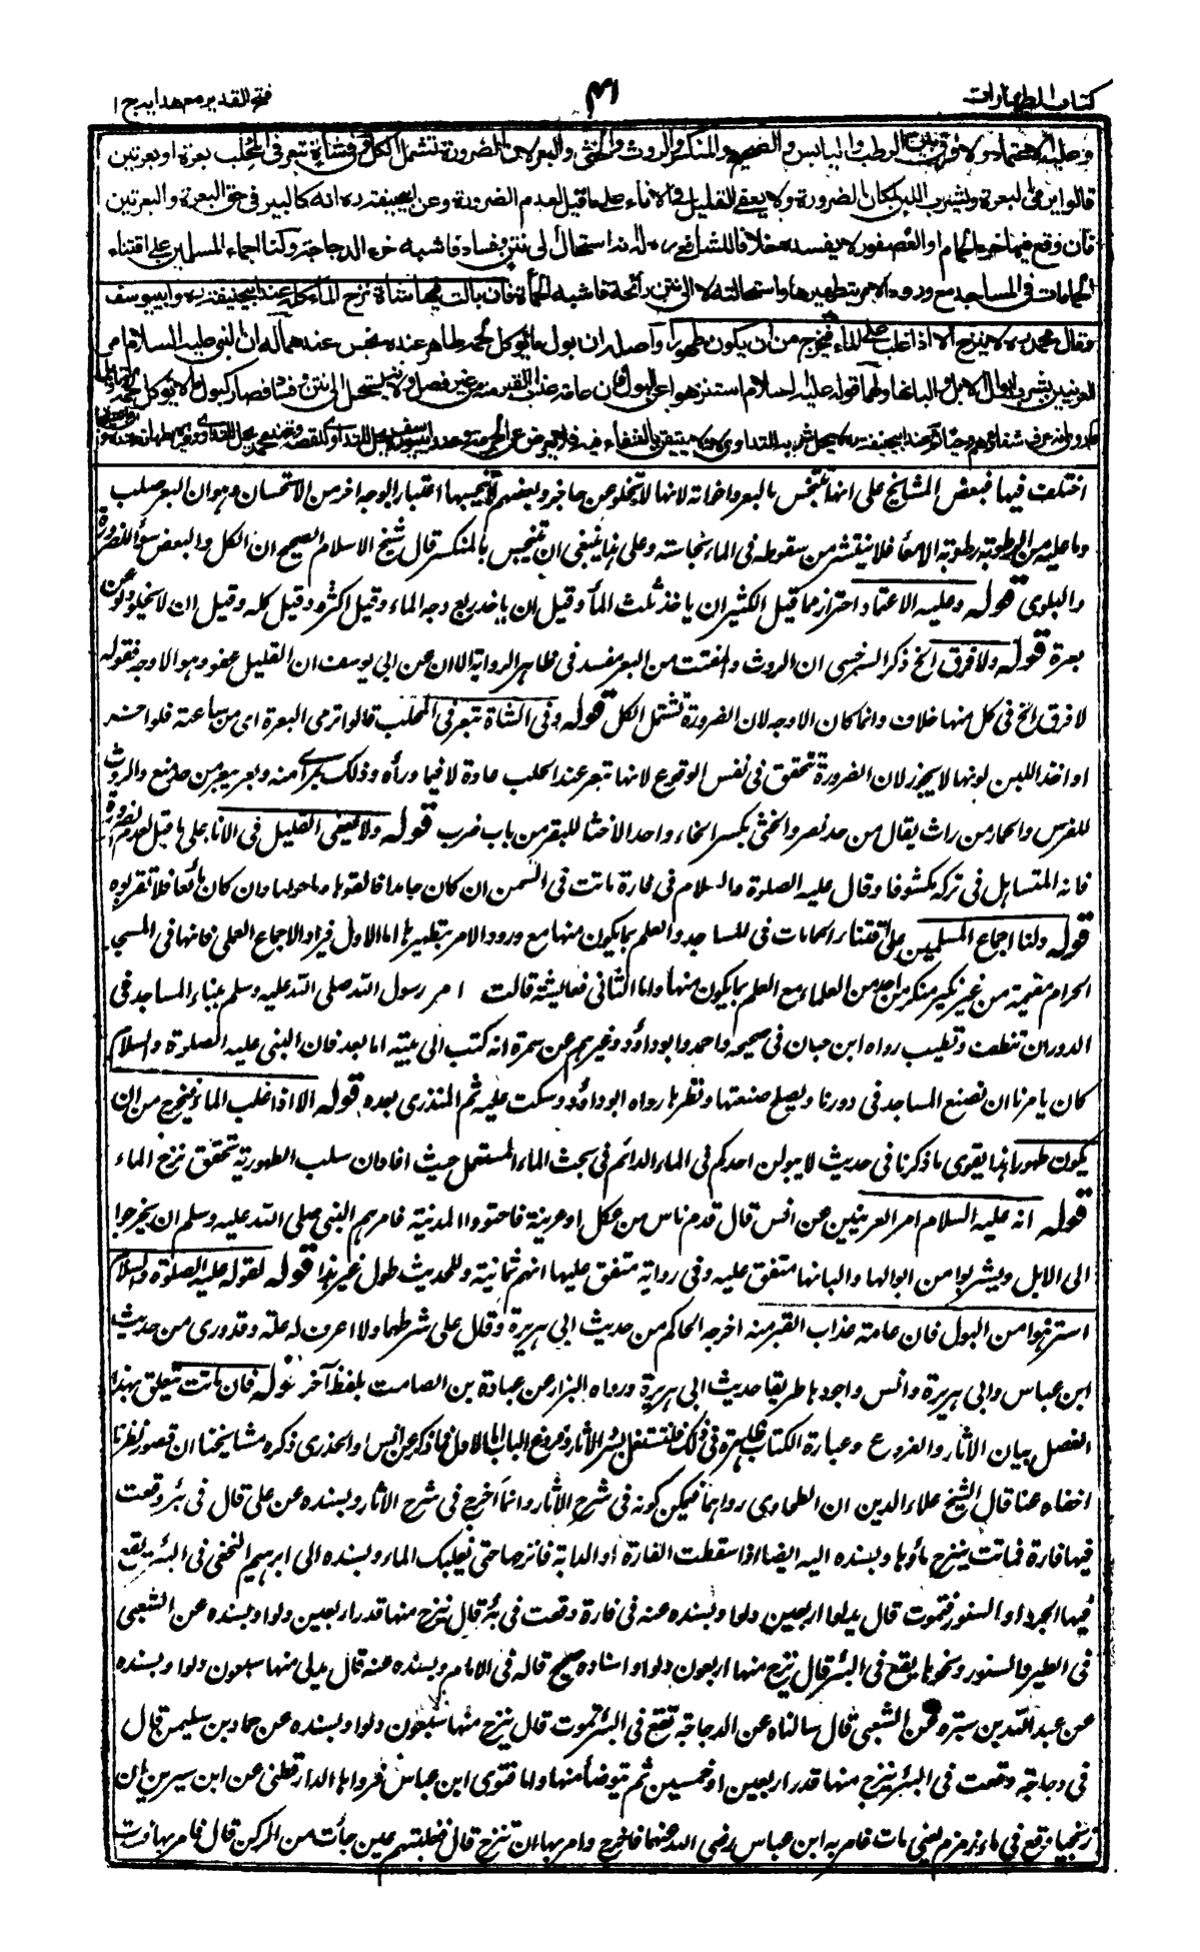 كتاب الطهارات
٤١
فتح القدير مع هدايه ج ١
وعليه الاعتماد ولا فرق بين الرطب واليابس والصحيح والمنكسر والروث والخثى والبعر لان الضرورة تشمل الكل وفى شاة تبعر فى المحلب بعرة او بعرتين
قالوا يرمى البعرة ويشرب اللبن لمكان الضرورة ولا يعفى القليل فى الاناء على ما قيل لعدم الضرورة وعن ابيحنيفة ره انه كالبير فى حق البعرة والبعرتين
فان وقع فيها خرء الحمام او العصفور لا يفسده خلافا للشافعى ره له انه استحال الى نتن وفساد فاشبه خرء الدجاجة ولنا اجماع المسلمين على اقتناء
الحمامات فى المساجد مع ورود الامر بتطهيرها واستحالته لا الى نتن رائحة فاشبه الحمأة فان بالت فيها شاة نزح الماء كله عند ابيحنيفة ره وابييوسف
وقال محمد ره لا ينزح الا اذا غلب على الماء فيخرج من ان يكون طهورا واصله ان بول ما يؤكل لحمه طاهر عنده نجس عندهما له ان النبى عليه السلام امر
العرنيين بشرب ابوال الابل والبانها ولهما قوله عليه السلام استنزهوا عن البول فان عامة عذاب القبر منه من غير فصل ولانه يستحيل الى نتن وفساد فصار كبول ما لا يؤكل لحمه
اختلف فيها فبعض المشائخ على انها تنجس بالبعر واخاته لانها لا تخلو عن حاجز وبعضهم لا تنجسها اعتبار الوجه اخر من الاستحسان وهو ان البعر صلب
وما عليه من الرطوبة رطوبة الامعاء فلا ينتشر من سقوطه فى الماء نجاسته وعلى هذا ينبغى ان تنجس بالمنكسر قال شيخ الاسلام الصحيح ان الكل والبعض سواء للضرورة
والبلوى قوله وعليه الاعتماد احتراز مما قيل الكثير ان ياخذ ثلث الماء وقيل ان ياخذ ربع وجه الماء وقيل اكثره وقيل كله وقيل ان لا يخلو دلو عن
بعرة قوله ولا فرق الخ ذكر السرخسى ان الروث والمفتت من البعر مفسد فى ظاهر الرواية الا ان عن ابى يوسف ان القليل عفو وهو الاوجه فقوله
لا فرق الخ فى كل منها خلاف وانما كان الاوجه لان الضرورة تشتمل الكل قوله وفى الشاة تبعر فى المحلب قالوا ترمى البعرة اى من ساعته فلو اخر
او اخذ اللبن لونها لا يجوز لان الضرورة تتحقق فى نفس الوقوع لانها تبعر عند الحلب عادة لا فيما وراه وذلك بمرأى منه وبعر يبعر من حد منع والروث
للفرس والحمار من راث يقال من حد نصر والخثى بكسر الخاء واحد الاخثاء للبقر من باب ضرب قوله ولا يعفى القليل فى الاناء على ما قيل لعدم الضرورة
فانه المتساهل فى تركه مكشوفا وقال عليه الصلوة والسلام فى فارة ماتت فى السمن ان كان جامدا فالقوها وما حولها وان كان مائعا فلا تقربوه
قوله ولنا اجماع المسلمين على اقتناء الحمامات فى المساجد والعلم بما يكون منها مع ورود الامر بتطهيرها اما الاول فيراد الاجماع العملى فانها فى المسجد
الحرام مقيمة من غير نكير منكر من احد من العلماء مع العلم بما يكون منها واما الثانى فعايشة قالت امر رسول الله صلى الله عليه وسلم ببناء المساجد فى
الدور ان تنظف وتطيب رواه ابن حبان فى صحيحه واحمد وابو داؤد وغيرهم عن سمرة انه كتب الى بنيه اما بعد فان النبى عليه الصلوة والسلام
كان يامرنا ان نصنع المساجد فى دورنا ويصلح صنعتها ونطهرها رواه ابو داؤد وسكت عليه ثم المنذرى بعده قوله الا اذا غلب الماء فيخرج من ان
يكون طهورا هذا يقوى ما ذكرنا فى حديث لا يبولن احدكم فى الماء الدائم فى بحث الماء المستعمل حيث افاد ان سلب الطهورية تتحقق نزح الماء
قوله انه عليه السلام امر العرنيين عن انس قال قدم ناس من عكل او عرينة فاجتووا المدينة فامرهم النبى صلى الله عليه وسلم ان يخرجوا
الى الابل ويشربوا من ابوالها والبانها متفق عليه وفى رواية متفق عليها انهم ثمانية وللحديث طول غير هذا قوله لقوله عليه الصلوة والسلام
استنزهوا من البول فان عامة عذاب القبر منه اخرجه الحاكم من حديث ابى هريرة وقال على شرطهما ولا اعرف له علة وقد روى من حديث
ابن عباس وابى هريرة وانس واجودها طريقا حديث ابى هريرة ورواه البزار عن عبادة بن الصامت بلفظ آخر قوله فان ماتت تتعلق بهذا
الفصل بيان الاثار والفروع وعبارة الكتاب ظاهرة فى ذلك فلنشتغل بسرد الاثار وفروع الباب اما الاول فما ذكر عن انس والخدرى ذكره مشايخنا ان قصور نظرنا
اخفاه عنا قال الشيخ علاء الدين ان الطحاوى رواهما فيمكن كونه فى شرح الآثار وانما اخرج فى شرح الاثار بسنده عن على قال فى بئر وقعت
فيها فارة فماتت ينزح ماؤها وبسنده اليه ايضا اذا سقطت الفارة او الدابة فانزحها حتى يغلبك الماء وبسنده الى ابرهيم النخعى فى البئر يقع
فيها الجرذ او السنور فتموت قال يدلوا اربعين دلوا وبسنده عنه فى فارة وقعت فى بئر قال ينزح منها قدر اربعين دلوا وبسنده عن الشعبى
فى الطير والسنور ونحوها يقع فى البئر قال ينزح منها اربعون دلوا واسناده صحيح قاله فى الامام وبسنده عنه قال يدلى منها سبعون دلوا وبسنده
عن عبد الله بن سبرة عن الشعبى قال سالناه عن الدجاجة تقع فى البئر فتموت قال ينزح منها سبعون دلوا وبسنده عن حماد بن سليمن قال
فى دجاجة وقعت فى البئر ينزح منها قدر اربعين او خمسين ثم يتوضأ منها واما فتوى ابن عباس فرواها الدارقطنى عن ابن سيرين ان
زنجيا وقع فى ماء زمزم يعنى مات فامر به ابن عباس رضى الله عنهما فاخرج وامر بها ان تنزح قال فغلبتهم عين جأت من الركن قال فامر بها فدست